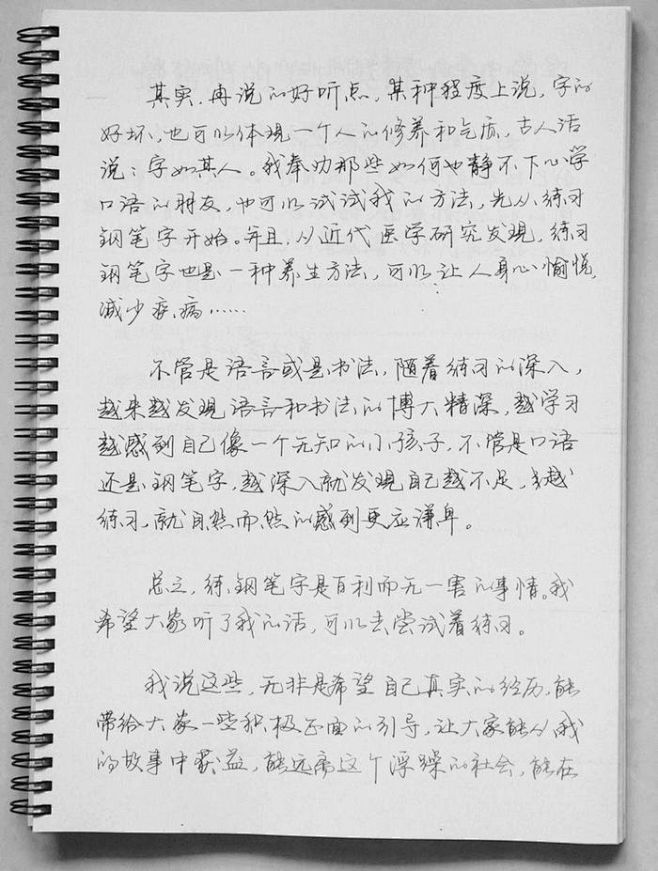 其实,再说的好听点,某种程度上说,字的
好坏,也可以体现一个人的修养和气质,古人话
说:字如其人。我奉劝那些如何也静不下心学
口语的朋友,也可以试试我的方法,先从练习
钢笔字开始。并且,从近代医学研究发现,练习
钢笔字也是一种养生方法,可以让人身心愉悦,
减少疾病……
不管是语言或是书法,随着练习的深入,
越来越发现语言和书法的博大精深,越学习
越感到自己像一个无知的小孩子,不管是口语
还是钢笔字,越深入就发现自己越不足,越
练习,就自然而然的感到更应谦卑。
总之,练钢笔字是百利而无一害的事情。我
希望大家听了我的话,可以去尝试着练习。
我说这些,无非是希望自己真实的经历,能
带给大家一些积极正面的引导,让大家能从我
的故事中获益,能远离这个浮躁的社会,能在